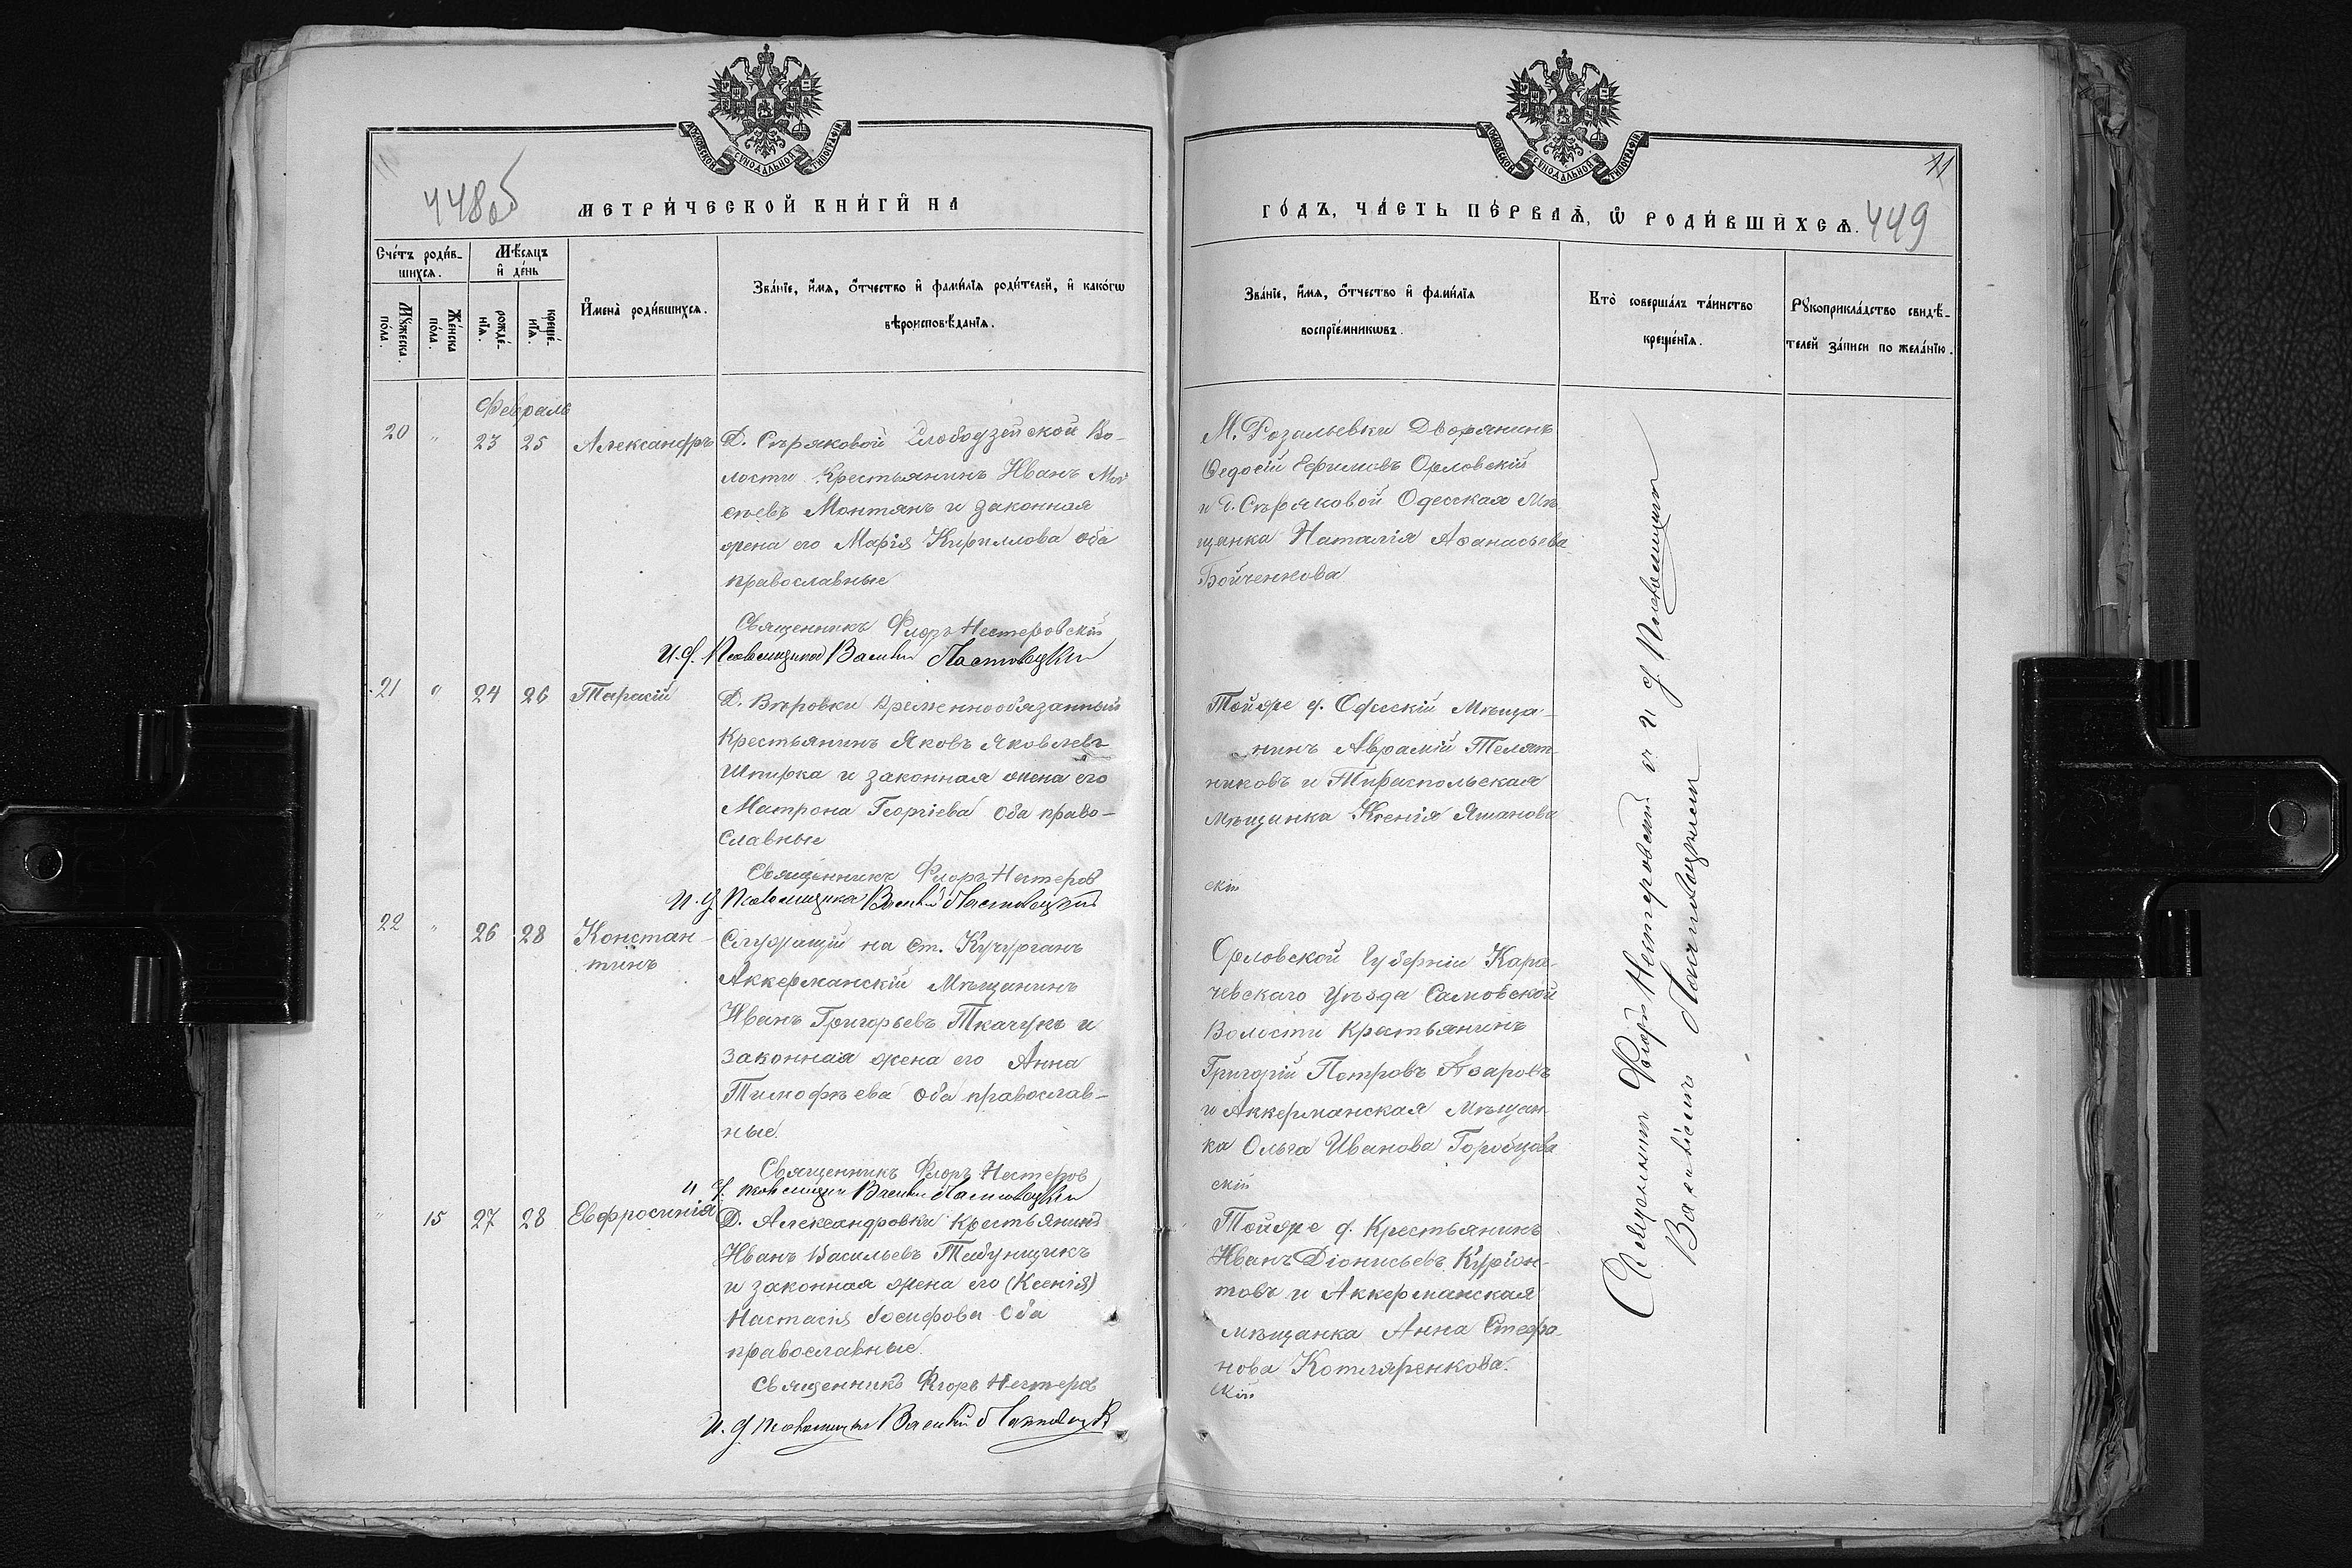 МОСКОВСКОЙ СѴНОДАЛЬНОЙ ТИПОГРАФІИ
448об
МЕТРИ́ЧЕСКОЙ КНИ́ГИ НА
Сче́тъ роди́в-
шихся.
Мѣ́сяцъ
и҆ де́нь
Мꙋ́жеска
по́ла.
Же́нска
по́ла.
рожде́-
нїѧ.
креще́-
нїѧ.
И҆мена̀ роди́вшихся.
Зва́нїе, и҆́мя, ѻ҆́тчество и҆ фами́лїя роди́телей, и҆ како́гѡ
вѣроисповѣ́данїя.
Февраль
20 " 23 25 Александръ
Д. Сѣряковой Слободзейской Во-
лости Крестьянинъ Иванъ Мои
сеевъ Монтянъ и законная
жена его Марія Кириллова оба
православные
Священникъ Флоръ Нестеровскій
И.д. Псаломщика Василій Ластовецкій
21 " 24 26 Тарасій
Д. Вѣровки Временнообязанный
Крестьянинъ Яковъ Яковлевъ
Шпирка и законная жена его
Матрона Георгіева оба право-
славные
Священникъ Флоръ Нестеров
И.д. Псаломщика Василій Ластовецкій
22 " 26 28 Констан-
тинъ
Служащій на Ст. Кучурганъ
Аккерманскій Мѣщанинъ
Иванъ Григорьевъ Ткачукъ и
законная жена его Анна
Тимофѣева оба православ-
ные.
Священникъ Флоръ Нестеров
И д. псаломщика Василій Ластовецкій
" 15 27 28 Евфросинія
Д. Александровки Крестьянинъ
Иванъ Васильевъ Табунщикъ
и законная жена его (Ксенія)
Настасія Іосифова Оба
православные.
Священникъ Флоръ Нестеров
И. д псаломщика Василій Ластовецк
МОСКОВСКОЙ СѴНОДАЛЬНОЙ ТИПОГРАФІИ
11
ГО́ДЪ, ЧА́СТЬ ПЕ́РВАЯ, Ѡ҆ РОДИ́ВШИХСЯ.
449
Зва́нїе, и҆́мя, ѻ҆́тчество и҆ фами́лїя
воспрїе́мникѡвъ.
Кто̀ соверша́лъ та́инство
креще́нїя.
Рꙋкоприкла́дство свидѣ́-
телей за́писи по жела́нїю.
М. Розальевки Дворянинъ
Ѳедосій Ефимовъ Орловскій
и д. Сѣряковой Одесская Мѣ
щанка Наталія Аѳанасьева
Бойченкова
Тойже д. Одесскій Мѣща-
нинъ Аврамій Телят-
никовъ и Тираспольская
Мѣщанка Ксенія Яманова
скій
Орловской Губерніи Кара-
чевскаго Уѣзда Самовской
Волости Крестьянинъ
Григорій Петровъ Азаровъ
и Аккерманская Мѣщан
ка Ольга Иванова Горобцова
скій
Тойже д. Крестьянинъ
Иванъ Діонисьевъ
товъ и Аккерманская
мѣщанка Анна Стефа-
нова Котляренкова.
скій
Священникъ Флоръ Нестеровскій и и д Псаломщика
Василій Ластовецкій